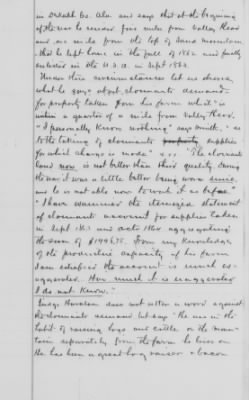 in DeKalb Co. Ala. and says that at the beginning
of the war he resided five miles from Valley Head
and one mile from the top of Sand mountain
that he left home in the fall of 1862 and finally
enlisted in the U.S.A. in Sept 1863.
Under these circumstances let us observe
what he says about claimants demand
for property taken from his farm which is
within a quarter of a mile from Valley Head.
"I personally know nothing" says witt. "as
to the taking of claimants property supplies
for which charge is made" ... "The claimants
land now is not better than their quality. During
the war it was a little better being worn since
and he is not able now to work it as before"
"I have examined the itemized statement
of claimants account for supplies taken
in Sept 1863 and acts 1864 aggregating
the sum of $1996.75. From my knowledge
of the productive capacity of his farm
I am satisfied the account is much ex-
aggerated. How much it is exaggerated
I do not know."
Judge Haralson does not utter a word against
the claimants demand but says "He was in the
habit of raising hogs and cattle on the moun-
tain separately from the farm he lives on
He has been a great hog raiser & bacon